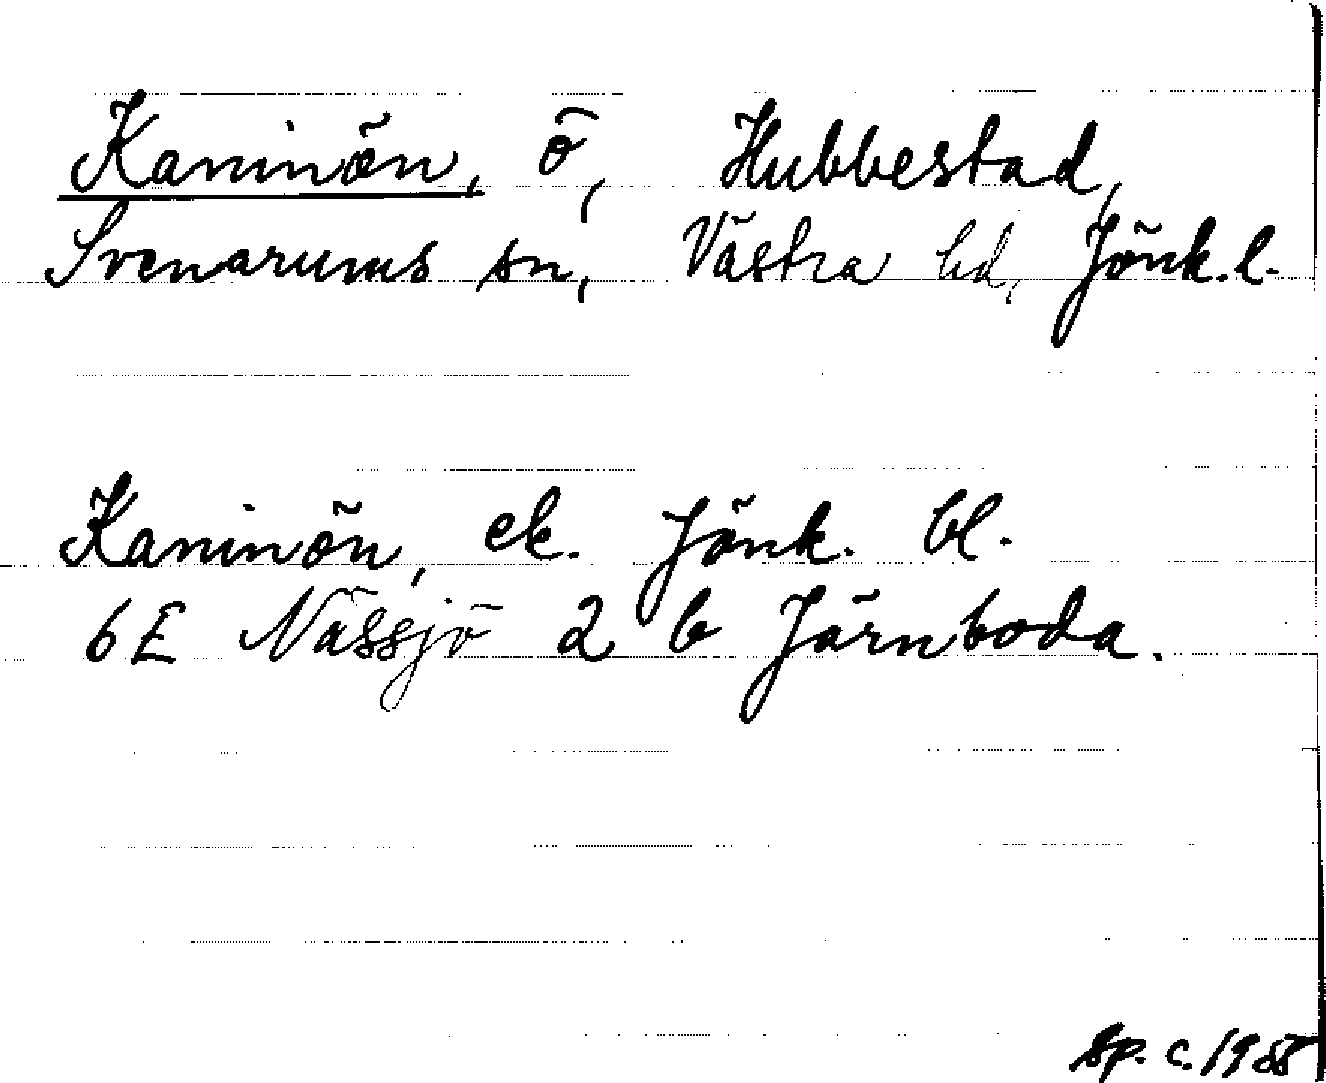 Kaninön, ö, Hubbestad,
Svenarums sn, Västra hd, Jönk. l.
Kaninön, ek. Jönk. bl.
6E Nässjö 2 b Järnboda.
Sp. c. 1955